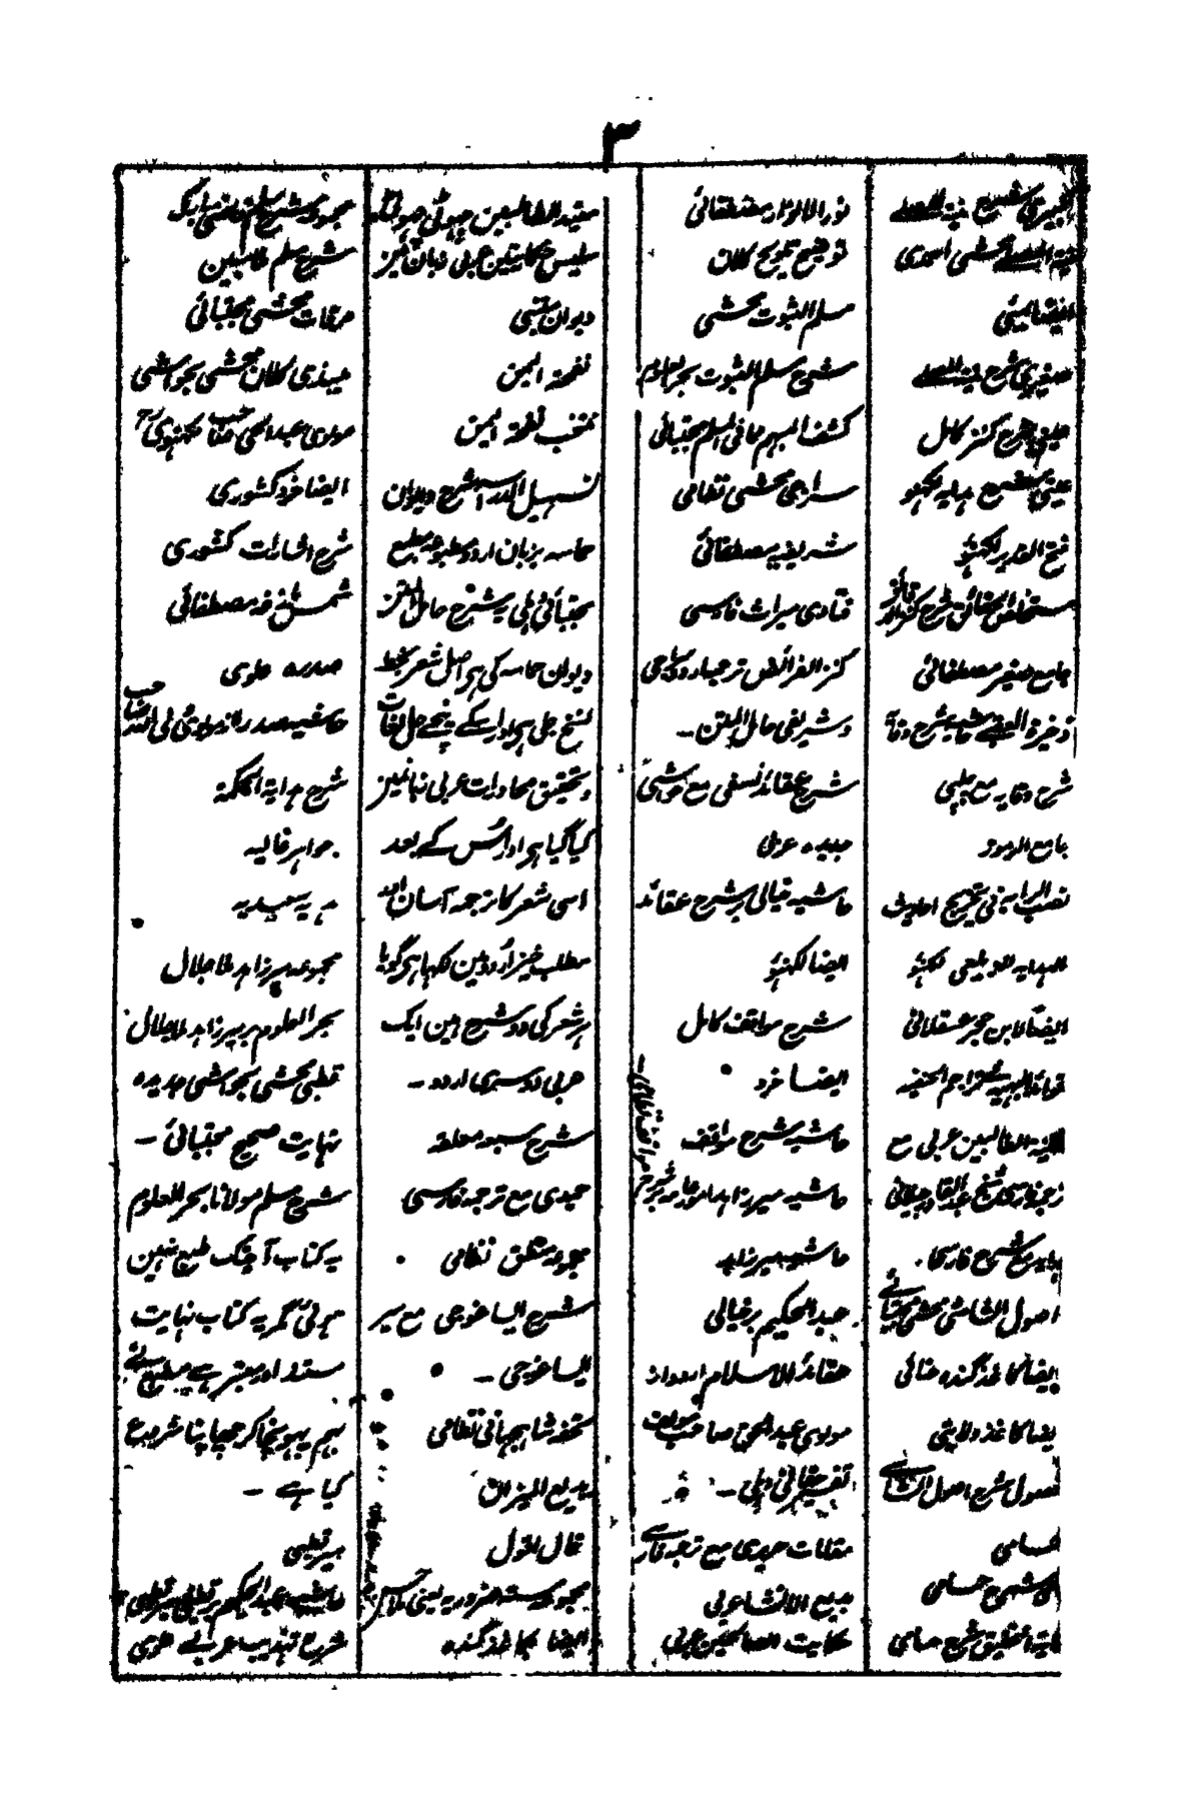 ۳
کبیری شرح منیة المصلی
منیة المصلی محشی احمدی
ایضا مینی
صغیری شرح منیة المصلی
عینی شرح کنز کامل
عینی شرح ہدایہ لکہنؤ
فتح القدیر لکہنؤ
مستخلص الحقائق شرح کنز الدقائق
جامع صغیر مصطفائی
ذخیرة العقبی حاشیہ شرح وقایہ
شرح وقایہ مع چلپی
جامع الرموز
نصب الرایہ فی تخریج احادیث
الہدایہ للزیلعی لکہنؤ
ایضاً لابن حجر عسقلانی
فوائد البہیہ فی تراجم الحنفیہ
غنیة الطالبین عربی مع
ترجمہ فارسی شیخ عبد القادر جیلانی
ہدایہ مع شرح فارسی
اصول الشاشی محشی مجتبائی
ایضاً کاغذ گندہ حنائی
ایضا کاغذ ولایتی
فصول شرح اصول الشاشی
حسامی
شرح حسامی
غایة التحقیق شرح حسامی
نور الانوار مصطفائی
توضیح تلویح کلان
مسلم الثبوت محشی
شرح مسلم الثبوت بحر العلوم
کشف المبہم مما فی المسلم مجتبائی
سراجی محشی نظامی
شریفیہ مصطفائی
فتاوی میراث فارسی
کنز الفرائض ترجمہ اردو سراجی
و شریفی حامل المتن ۔
شرح عقائد نسفی مع حواشی
جدیدہ عربی
حاشیہ خیالی بر شرح عقائد
ایضا لکہنؤ
شرح مواقف کامل
ایضا خرد
حاشیہ شرح مواقف
حاشیہ میرزاہد امور عامہ شرح مواقف نظامی ۔
حاشیہ میرزاہد
عبد الحکیم بر خیالی
عقائد الاسلام اردو از
مولوی عبد الحق صاحب مولف
تفسیر حقانی دہلی ۔
مقامات حریری مع ترجمہ فارسی
بدیع الانشا عربی
حکایت الصالحین عربی
مفید الطالبین چہوٹی چہوٹی
سلیس حکایتین عربی زبان مین
دیوان متنبی
نفحة الیمن
منتخب نفحة الیمن
تسہیل الدراسہ شرح دیوان
حماسہ بزبان اردو مطبوعہ مطبع
مجتبائی دہلی یہ شرح حامل المتن
دیوان حماسہ کی ہی اصل شعر بخط
نسخ جلی ہی اور اسکے نیچے حل لغات
و تحقیق محاورات عربی زبان مین
کیا گیا ہی اور اُس کے بعد
اسی شعر کا ترجمہ آسان اور
مطلب خیز اُردو مین لکہا ہی گویا
ہر شعر کی دو شرح ہین ایک
عربی دوسری اردو ۔
شرح سبعہ معلقہ
حمیدی مع ترجمہ فارسی
مجموعہ منطق نظامی
شرح ایساغوجی مع میر
ایساغوجی ۔
تحفہ شاہجہانی نظامی
بدیع المیزان
قال اقول
مجموعہ ستہ ضروریہ یعنی ملا حسن
ایضا کاغذ گندہ
مجموعہ شرح سلم قاضی مبارک
شرح سلم ملا مبین
مرقات محشی مجتبائی
میبذی کلان محشی بحواشی
مولوی عبد الحی صاحب لکہنوی رح
ایضا خرد کشوری
شرح اشارات کشوری
شمس بازغہ مصطفائی
صدرا علوی
حاشیہ صدرا از مولوی ولی اللہ صاحب
شرح ہدایة الحکمة
جواہر غالیہ
ہدیہ سعیدیہ
مجموعہ میرزاہد ملا جلال
بحر العلوم بر میرزاہد ملا جلال
قطبی محشی بحواشی جدیدہ
نہایت صحیح مجتبائی ۔
شرح سلم مولانا بحر العلوم
یہ کتاب آجتک طبع نہین
ہوئی مگر یہ کتاب نہایت
مستند اور معتبر ہے مطبع نے
بہم پہونچا کر چھاپنا شروع
کیا ہے ۔
میر قطبی
حاشیہ عبد الحکیم بر قطبی میر قطبی
شرح تہذیب عربی علوی